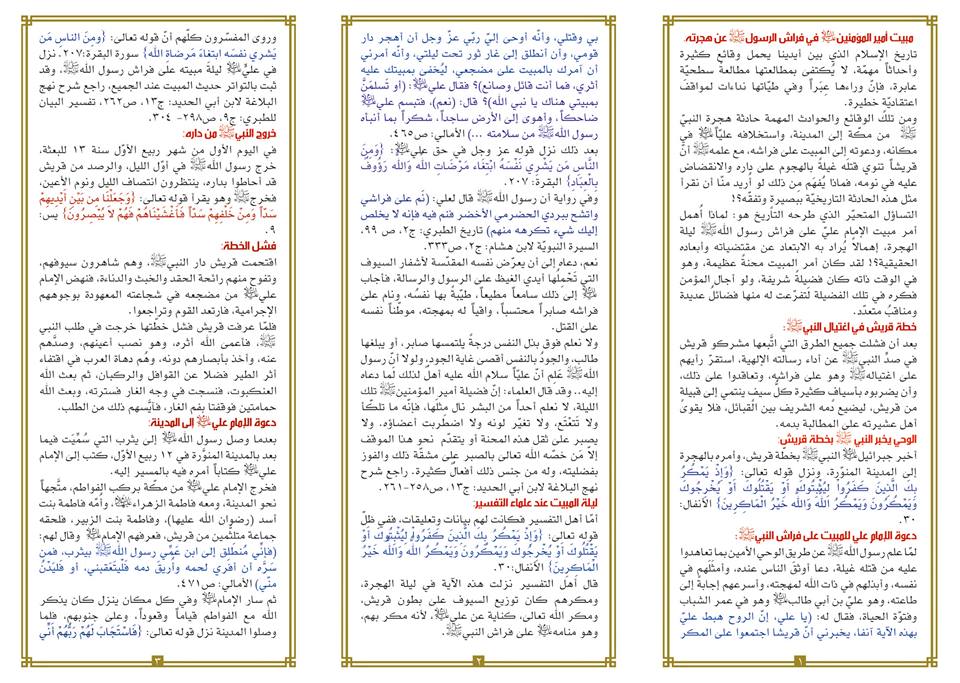 مبيت أمير المؤمنين في فراش الرسول ﷺ عن هجرته
تاريخ الإسلام الذي بين أيدينا يحمل وقائع كثيرة
وأحداثاً مهمّة، لا يُكتفى بمطالعتها مطالعةً سطحيّة
عابرة، فإنّ وراءها عِبَراً وفي طيّاتها نداءات لمواقف
اعتقاديّة خطيرة.
ومن تلك الوقائع والحوادث المهمة حادثة هجرة النبيّ
ﷺ من مكّة إلى المدينة، واستخلافه عليّاً في
مكانه، ودعوته إلى المبيت على فراشه، مع علمه أنَّ
قريشاً تنوي قتله غيلةً بالهجوم على داره والانقضاض
عليه في نومه، فماذا يُفهَم من ذلك لو أُريد منّا أن نقرأ
مثل هذه الحادثة التاريخيّة ببصيرة وتفقّه؟!
التساؤل المتحيّر الذي طرحه التأريخ هو: لماذا أُهمل
أمر مبيت الإمام عليّ على فراش رسول الله ﷺ ليلة
الهجرة، إهمالاً يُراد به الابتعاد عن مقتضياته وأبعاده
الحقيقية؟! لقد كان أمر المبيت محنةً عظيمة، وهو
في الوقت ذاته كان فضيلةً شريفة، ولو أجال المؤمن
فكره في تلك الفضيلة لتفرّعت له منها فضائل عديدة
ومناقبُ متعدّد.
خطة قريش في اغتيال النبي ﷺ:
بعد أن فشلت جميع الطرق التي اتّبعها مشركو قريش
في صدّ النبيّ ﷺ عن أداء رسالته الإلهية، استقرّ رأيهم
على اغتياله ﷺ وهو على فراشه، وتعاقدوا على ذلك،
وأن يضربوه بأسيافٍ كثيرة كلّ سيف ينتمي إلى قبيلةٍ
من قريش، ليضيع دمه الشريف بين القبائل، فلا يقوى
أهل عشيرته على المطالبة بدمه.
الوحي يخبر النبي ﷺ بخطة قريش:
أخبر جبرائيل النبيّ ﷺ بخطة قريش، وأمره بالهجرة
إلى المدينة المنوّرة، ونزل قوله تعالى: {وَإِذْ يَمْكُرُ
بِكَ الَّذِينَ كَفَرُوا لِيُثْبِتُوكَ أَوْ يَقْتُلُوكَ أَوْ يُخْرِجُوكَ
وَيَمْكُرُونَ وَيَمْكُرُ اللَّهُ وَاللَّهُ خَيْرُ الْمَاكِرِينَ} الأنفال:
٣٠.
دعوة الإمام علي للمبيت على فراش النبي ﷺ:
لمّا علم رسول الله ﷺ عن طريق الوحي الأمين بما تعاهدوا
عليه من قتله غيلة، دعا أوثق الناس عنده، وأمثَلَهم في
نفسه، وأبذلهم في ذات الله لمهجته، وأسرعهم إجابةً إلى
طاعته، وهو عليّ بن أبي طالب وهو في عمر الشباب
وفتوّة الحياة، فقال له: (يا علي، إنّ الروح هبط عليّ
بهذه الآية آنفا، يخبرني أنّ قريشا اجتمعوا على المكر
١
بي وقتلي، وأنّه أوحى إليّ ربّي عزّ وجل أن أهجر دار
قومي، وأن أنطلق إلى غار ثور تحت ليلتي، وأنّه أمرني
أن آمرك بالمبيت على مضجعي، ليُخفى بمبيتك عليه
أثري، فما أنت قائل وصانع)؟ فقال عليّ: (أو تَسلمَنَّ
بمبيتي هناك يا نبي الله)؟ قال: (نعم)، فتبسم عليّ
ضاحكاً، وأهوى إلى الأرض ساجداً، شكراً بما أنبأه
رسول الله ﷺ من سلامته ...) الأمالي: ص٤٦٥.
بعد ذلك نزل قوله عز وجل في حق علي: {وَمِنَ
النَّاسِ مَن يَشْرِي نَفْسَهُ ابْتِغَاء مَرْضَاتِ اللَّهِ وَاللَّهُ رَؤُوفٌ
بِالْعِبَادِ} البقرة: ٢٠٧.
وفي رواية أن رسول الله ﷺ قال لعلي: (نَم على فراشي
واتشح ببردي الحضرمي الأخضر فنم فيه فإنه لا يخلص
إليك شيء تكرهه منهم) تاريخ الطبري: ج٢، ص ٩٩،
السيرة النبويّة لابن هشام: ج٢، ص٣٣٣.
نعم، دعاه إلى أن يعرّض نفسه المقدّسة لأشفار السيوف
التي تَحْمِلُها أيدي الغيظ على الرسول والرسالة، فأجاب
إلى ذلك سامعاً مطيعاً، طيّبةً بها نفسُه، ونام على
فراشه صابراً محتسباً، واقياً له بمهجته، موطّناً نفسه
على القتل.
ولا نعلم فوق بذل النفس درجةً يلتمسها صابر، أو يبلغها
طالب، والجودُ بالنفس أقصى غاية الجود، ولولا أنّ رسول
الله ﷺ عَلِم أنّ عليّاً سلام الله عليه أهلٌ لذلك لَما دعاه
إليه.. وقد قال العلماء: إنّ فضيلة أمير المؤمنين تلك
الليلة، لا نعلم أحداً من البشر نال مِثلَها، فإنّه ما تلكّأ
ولا تَتَعْتَع، ولا تغيّر لونه ولا اضطربت أعضاؤه، ولا
يصبر على ثقل هذه المحنة أو يتقدّم نحو هذا الموقف
إلاّ مَن خصّه الله تعالى بالصبر على مشقّة ذلك والفوز
بفضيلته، وله من جنس ذلك أفعالٌ كثيرة. راجع شرح
نهج البلاغة لابن أبي الحديد: ج١٣، ص٢٥٨-٢٦١.
ليلة المبيت عند علماء التفسير:
أمّا أهل التفسير فكانت لهم بيانات وتعليقات، ففي ظلّ
قوله تعالى: {وَإِذْ يَمْكُرُ بِكَ الَّذِينَ كَفَرُوا لِيُثْبِتُوكَ أَوْ
يَقْتُلُوكَ أَوْ يُخْرِجُوكَ وَيَمْكُرُونَ وَيَمْكُرُ اللَّهُ وَاللَّهُ خَيْرُ
الْمَاكِرِينَ} الأنفال:٣٠.
قال أهل التفسير نزلت هذه الآية في ليلة الهجرة،
ومكرهم كان توزيع السيوف على بطون قريش،
ومكر الله تعالى، كناية عن علي، لأنه مكر بهم،
وهو منامه على فراش النبي ﷺ.
٢
وروى المفسّرون كلّهم أنّ قوله تعالى: {ومِنَ الناسِ مَن
يَشري نفسَه ابتغاءَ مَرضاةِ الله} سورة البقرة:٢٠٧، نزل
في عليّ ليلةَ مبيته على فراش رسول الله ﷺ، وقد
ثبت بالتواتر حديث المبيت عند الجميع، راجع شرح نهج
البلاغة لابن أبي الحديد: ج١٣، ص٢٦٢، تفسير البيان
للطبري: ج٩، ص٢٩٨- ٣٠٤.
خروج النبي ﷺ من داره:
في اليوم الأول من شهر ربيع الأوّل سنة ١٣ للبعثة،
خرج رسول الله ﷺ في أوّل الليل، والرصد من قريش
قد أحاطوا بداره، ينتظرون انتصاف الليل ونوم الأعين،
فخرج ﷺ وهو يقرأ قوله تعالى: {وَجَعَلْنَا مِن بَيْنِ أَيْدِيهِمْ
سَدّاً وَمِنْ خَلْفِهِمْ سَدّاً فَأَغْشَيْنَاهُمْ فَهُمْ لاَ يُبْصِرُونَ} يس:
٩.
فشل الخطة:
اقتحمت قريش دار النبي ﷺ، وهم شاهرون سيوفهم،
وتفوح منهم رائحة الحقد والخبث والدناءة، فنهض الإمام
علي من مضجعه في شجاعته المعهودة بوجوههم
الإجرامية، فارتعد القوم وتراجعوا.
فلمّا عرفت قريش فشل خطّتها خرجت في طلب النبي
ﷺ، فأعمى الله أثره، وهو نصب أعينهم، وصدّهم
عنه، وأخذ بأبصارهم دونه، وهُم دهاة العرب في اقتفاء
أثر الطير فضلا عن القوافل والركبان، ثم بعث الله
العنكبوت، فنسجت في وجه الغار فسترته، وبعث الله
حمامتين فوقفتا بفم الغار، فأيَّسهم ذلك من الطلب.
دعوة الإمام علي إلى المدينة:
بعدما وصل رسول الله ﷺ إلى يثرب التي سُمِّيَت فيما
بعد بالمدينة المنوّرة في ١٢ ربيع الأوّل، كتب إلى الإمام
علي كتاباً أمره فيه بالمسير إليه.
فخرج الإمام علي من مكة بركب الفواطم، متّجهاً
نحو المدينة، ومعه فاطمة الزهراء، وأمّه فاطمة بنت
أسد (رضوان الله عليها)، وفاطمة بنت الزبير، فلحقه
جماعة متلثّمين من قريش، فعرفهم الإمام وقال لهم:
(فإنّي مُنطلق إلى ابن عمِّي رسول الله ﷺ بيثرب، فمن
سَرَّه أن أفري لحمه وأُريق دمه فليتعقبني، أو فليَدْنُ
منّي) الأمالي: ص٤٧١.
ثم سار الإمام وفي كل مكان ينزل كان يذكر
الله مع الفواطم قياماً وقعوداً، وعلى جنوبهم، فلما
وصلوا المدينة نزل قوله تعالى: {فَاسْتَجَابَ لَهُمْ رَبُّهُمْ أَنِّي
٣